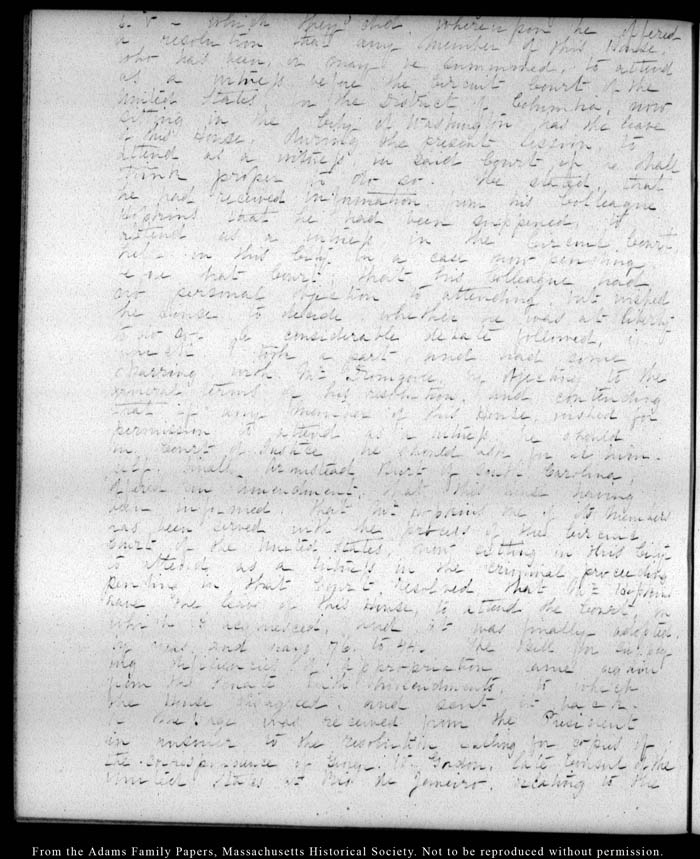 which they did. Whereupon he offered
a resolution that any member of this House
who has been, or may be summoned, to attend
as a witness before the Circuit Court of the
United States, in the District of Columbia, now
sitting in the City of Washington has the leave
of this House, during the present session, to
attend as a witness in said Court if he shall
think proper to do so. He stated, that
he had received information from his Colleague
Hopkins that he had been to
attend as a witness in the Circuit Court,
held in this City in a case now pending
before that Court; that his Colleague had
no personal objection to attending, but wished
the House to decide whether he was at liberty
to do so. A considerable debate followed, in
which I took a part, and had some
sparring with Mr. Dromgoole, by objecting to the
general terms of his resolution, and contending
that if any member of this House, wished for
permission to attend as a witness, he should
in Court of Justice, he should ask for it him-
self. Finally Armistead Burt of South Carolina,
offered an amendment, that this House having
been informed, that Mr. Hopkins one of its members
has been served with the process of the Circuit
Court of the United States, now sitting in this City
to attend as a witness in the criminal proceeding
pending in that Court, resolved that Mr. Hopkins
have the leave of this House, to attend the Court, in
which acquiesced, and it was finally adopted.
by yeas, and nays 76. to 44. The Bill for supply-
ing deficiencies of appropriation came again
from the Senate with Amendments, to which
the House disagreed, and sent it back.
A Message was received from the President
in answer to the resolution calling for copies of
the correspondence of George W. Gordon, late Consul of the
United States at Rio de Janeiro, relating to the
From the Adams Family Papers, Massachusetts Historical Society. Not to be reproduced without permission.